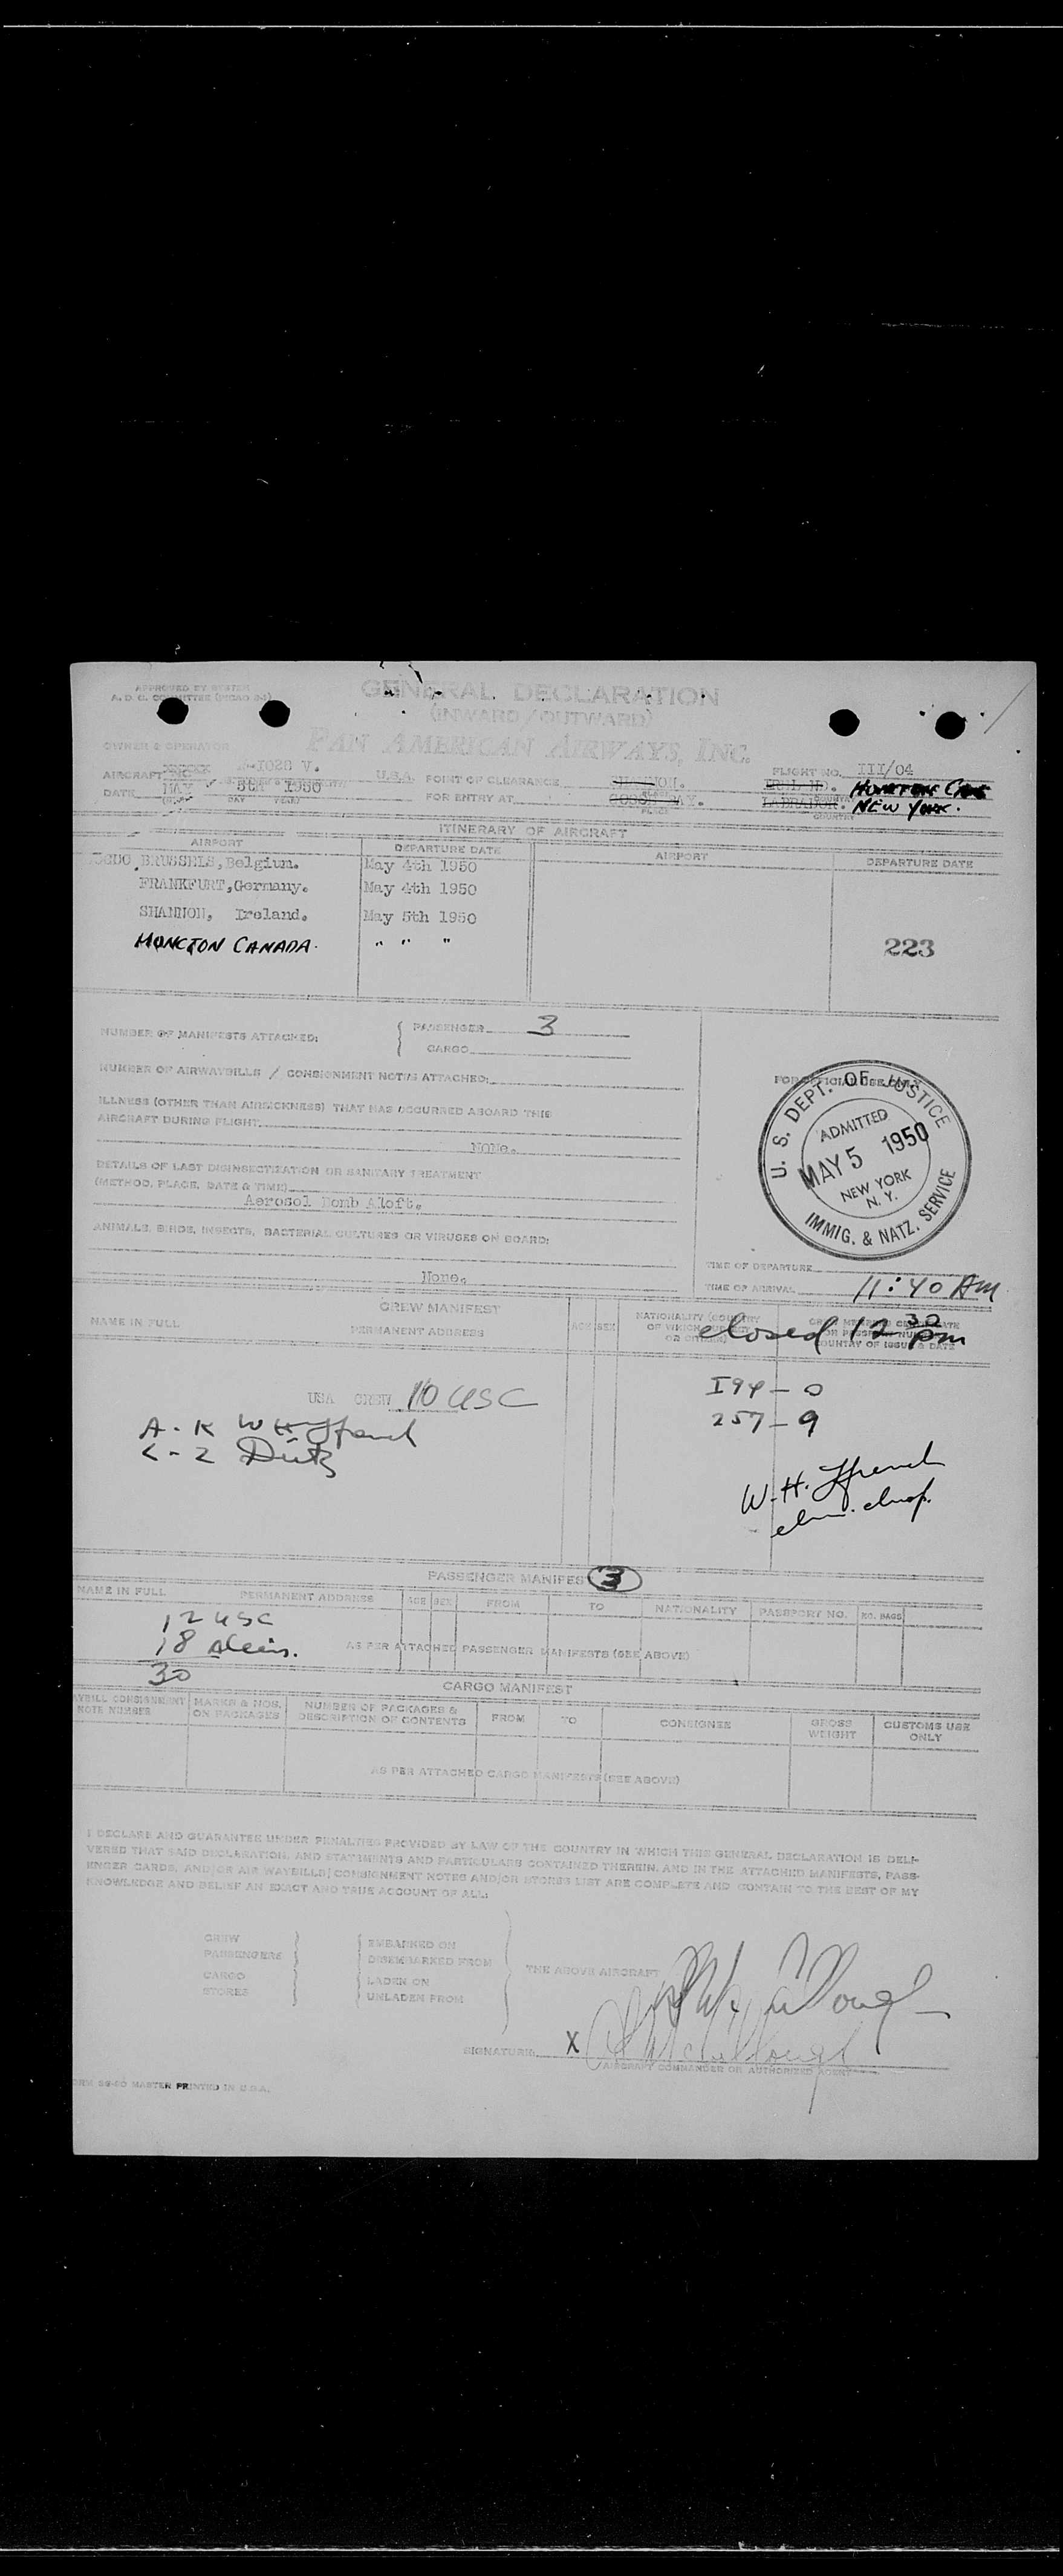 APPROVED BY SYSTEM
A. D. C. COMMITTEE
GENERAL DECLARATION
(INWARD / OUTWARD)
OWNER & OPERATOR PAN AMERICAN AIRWAYS, INC.
AIRCRAFT NC 1028 V. U.S.A. POINT OF CLEARANCE SHANNON. FLIGHT NO. III/04
DATE MAY 5th 1950 FOR ENTRY AT NEW YORK.
DAY YEAR PLACE COUNTRY
ITINERARY OF AIRCRAFT
AIRPORT DEPARTURE DATE AIRPORT DEPARTURE DATE
BRUSSELS, Belgium. May 4th 1950
FRANKFURT, Germany. May 4th 1950
SHANNON, Ireland. May 5th 1950
MONCTON CANADA. " " "
223
NUMBER OF MANIFESTS ATTACHED: { PASSENGER 3
CARGO
NUMBER OF AIRWAYBILLS / CONSIGNMENT NOTES ATTACHED:
FOR OFFICIAL USE ONLY
U. S. DEPT. OF JUSTICE
ADMITTED
MAY 5 1950
NEW YORK
N. Y.
IMMIG. & NATZ. SERVICE
ILLNESS (OTHER THAN AIRSICKNESS) THAT HAS OCCURRED ABOARD THIS
AIRCRAFT DURING FLIGHT
None.
DETAILS OF LAST DISINSECTIZATION OR SANITARY TREATMENT
(METHOD, PLACE, DATE & TIME)
Aerosol Bomb Aloft.
ANIMALS, BIRDS, INSECTS, BACTERIAL CULTURES OR VIRUSES ON BOARD:
None.
TIME OF DEPARTURE
TIME OF ARRIVAL 11:40 AM
closed 12 30 pm
CREW MANIFEST
NAME IN FULL PERMANENT ADDRESS AGE SEX NATIONALITY (COUNTRY
COUNTRY OF ISSUE & DATE
USA CREW 10 USC
I94 - 0
257 - 9
A - K W H Ffrench
L - Z
W. H. Ffrench
PASSENGER MANIFEST 3
NAME IN FULL PERMANENT ADDRESS AGE SEX FROM TO NATIONALITY PASSPORT NO. NO. BAGS
12 USC
18 Aliens.
30
AS PER ATTACHED PASSENGER MANIFESTS (SEE ABOVE)
CARGO MANIFEST
WAYBILL CONSIGNMENT NOTE NUMBER MARKS & NOS. ON PACKAGES NUMBER OF PACKAGES & DESCRIPTION OF CONTENTS FROM TO CONSIGNEE GROSS WEIGHT CUSTOMS USE ONLY
AS PER ATTACHED CARGO MANIFESTS (SEE ABOVE)
I DECLARE AND GUARANTEE UNDER PENALTIES PROVIDED BY LAW OF THE COUNTRY IN WHICH THIS GENERAL DECLARATION IS DELI-
VERED THAT SAID DECLARATION, AND STATEMENTS AND PARTICULARS CONTAINED THEREIN, AND IN THE ATTACHED MANIFESTS, PASS-
ENGER CARDS, AND/OR AIR WAYBILLS/CONSIGNMENT NOTES AND/OR STORES LIST ARE COMPLETE AND CONTAIN TO THE BEST OF MY
KNOWLEDGE AND BELIEF AN EXACT AND TRUE ACCOUNT OF ALL:
CREW EMBARKED ON
PASSENGERS DISEMBARKED FROM
THE ABOVE AIRCRAFT
CARGO LADEN ON
STORES UNLADEN FROM
SIGNATURE X
AIRCRAFT COMMANDER OR AUTHORIZED AGENT
MASTER PRINTED IN U.S.A.